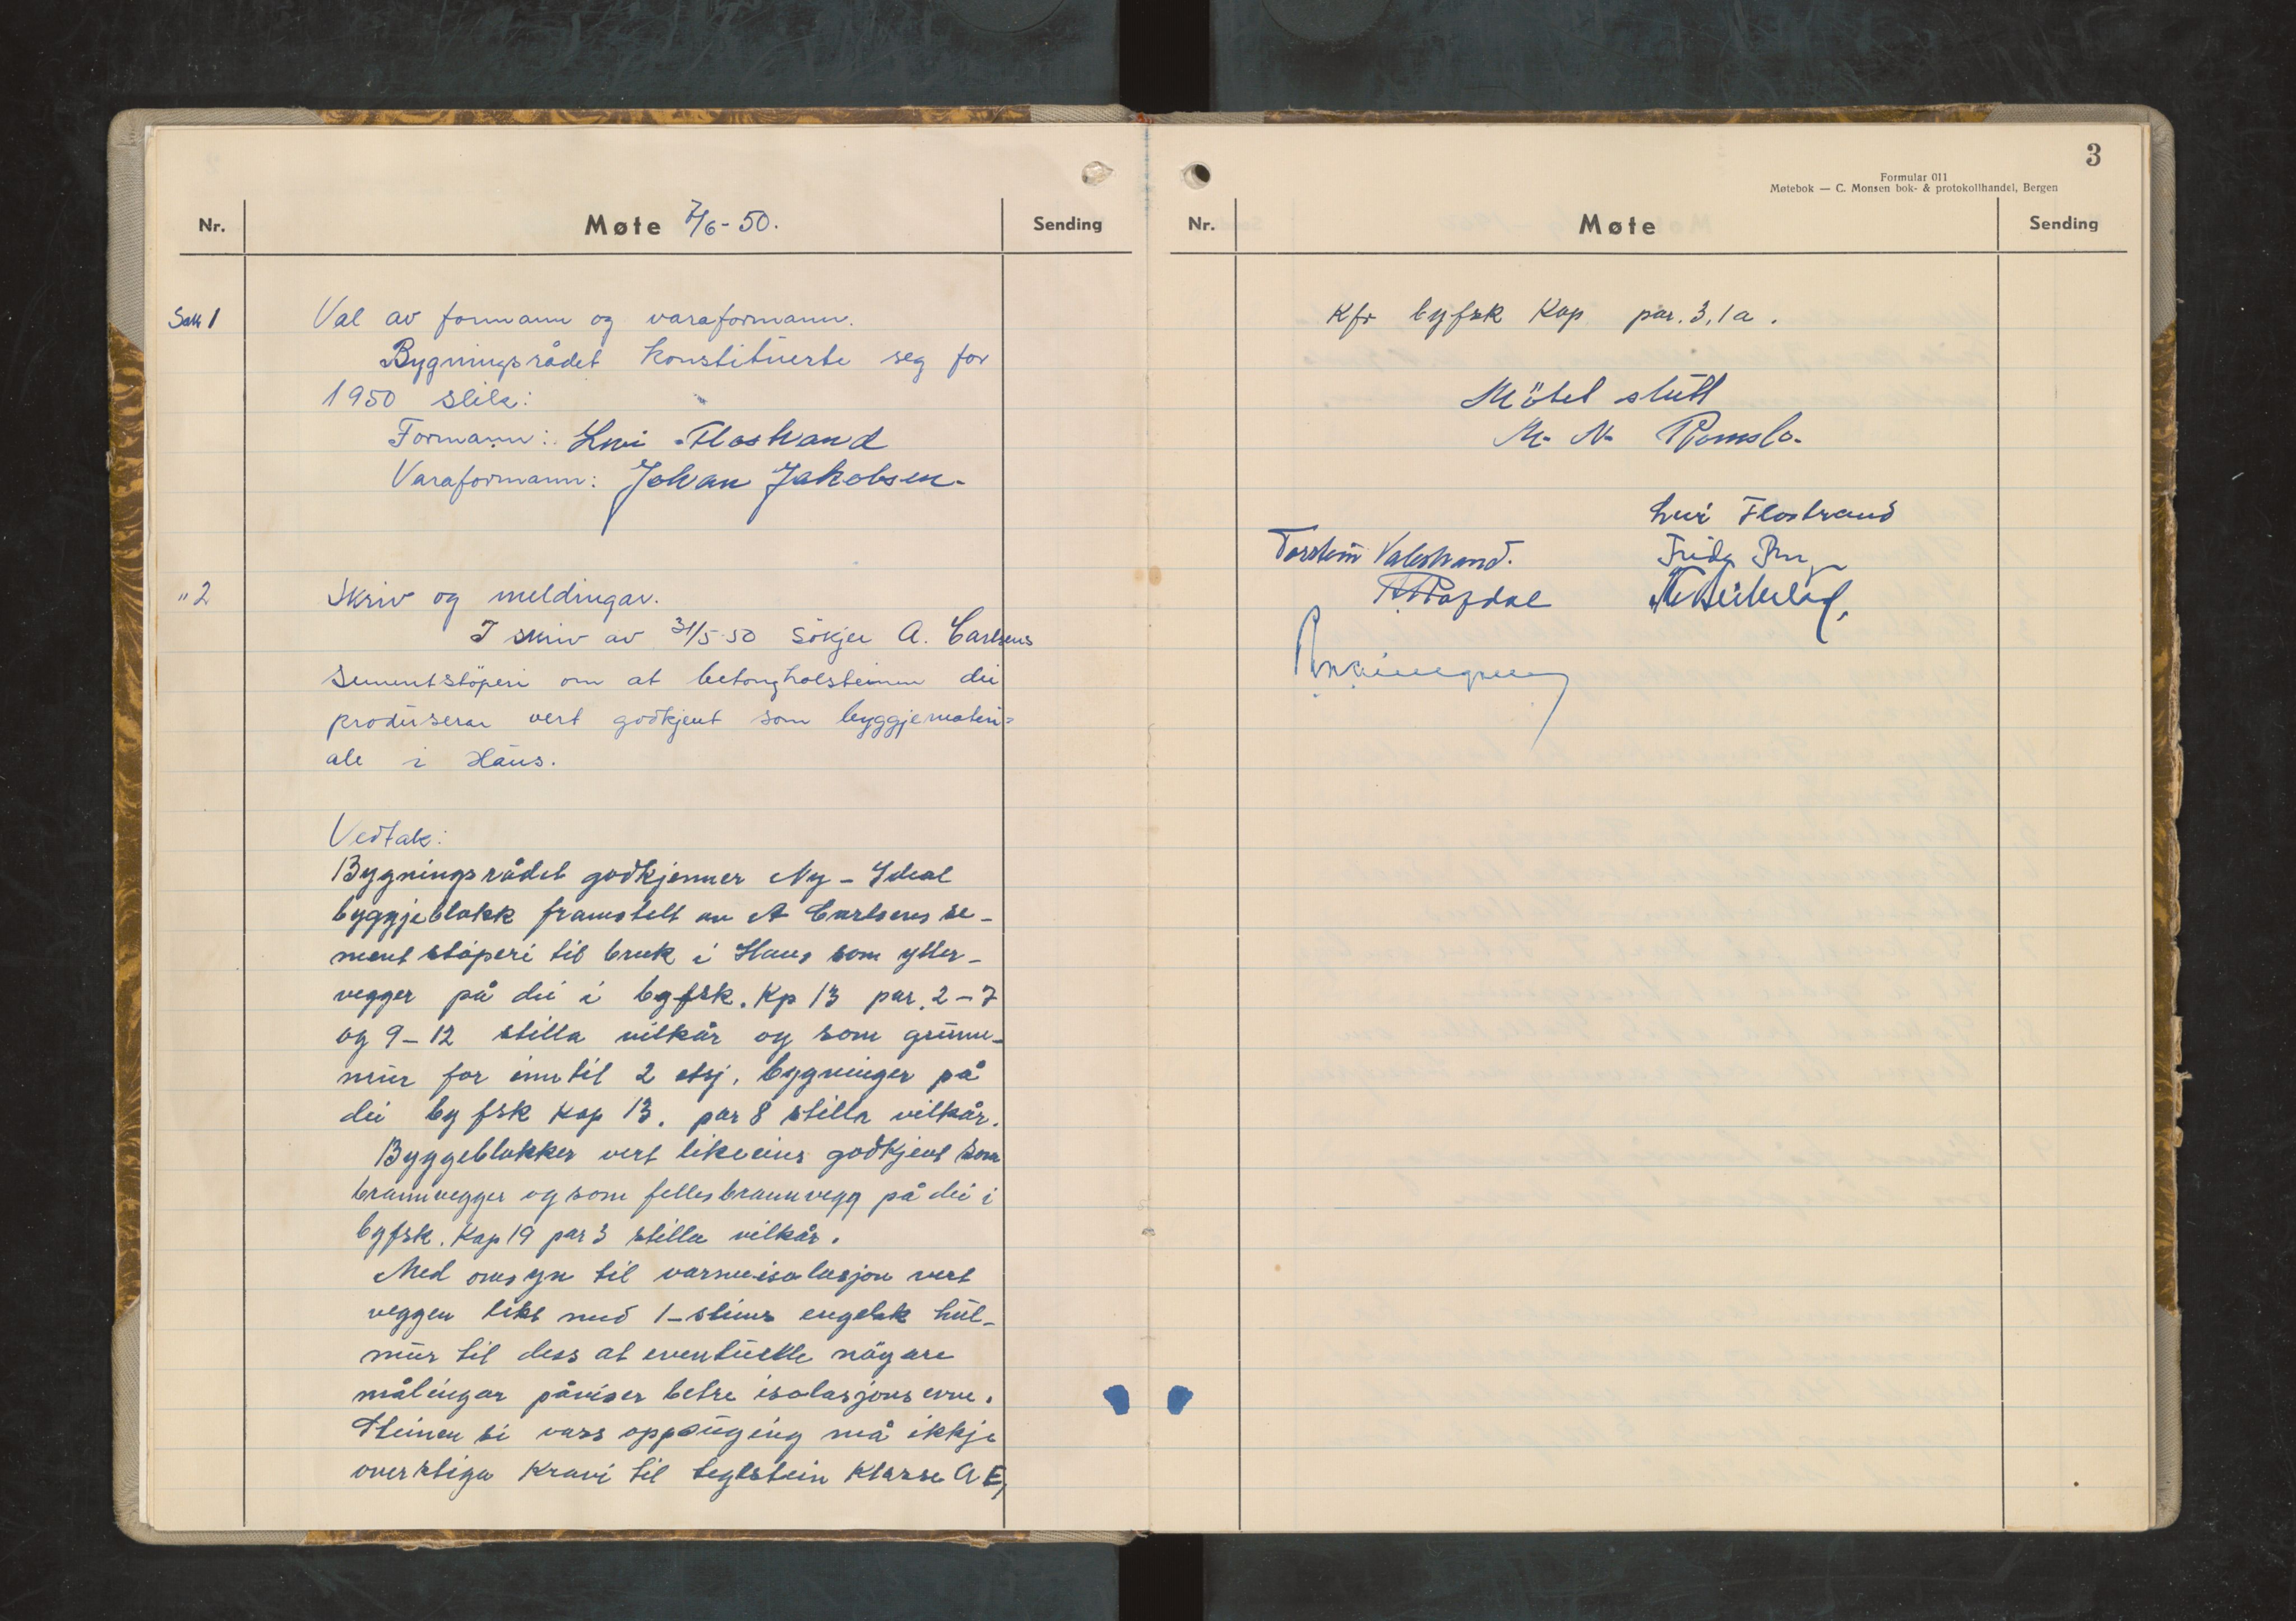 Nr. Møte 7/6-50. Sending
Sak 1 Val av formann og varaformann.
Bygningsrådet konstituerte seg for
1950 slik:
Formann: Livi Flostrand
Varaformann: Johan Jakobsen.
" 2 Skriv og meldingar.
I skriv av 31/5-50 søkjer A. Carlsens
sementstöperi om at betongholsteinen dei
produserar vert godkjent som byggjemateri=
ale i Haus.
Vedtak:
Bygningsrådet godkjenner Ny-Ideal
byggjeblokk framstelt av A Carlsens se-
mentstöperi til bruk i Haus som ytter-
vegger på dei i bygfsk. Kp 13 par. 2-7
og 9-12 stilla vilkår og som grunn-
mur for inntil 2 etsj. bygninger på
dei bygfsk Kap 13. par 8 stilla vilkår.
Byggeblokker vert likeeins godkjent som
brannvegger og som felles brannvegg på dei i
bygfsk. Kap 19 par 3 stilla vilkår.
Med omsyn til varmeisolasjon vert
veggen likt med 1-steins engelsk hul-
mur til dess at eventuelle nögare
målingar påviser betre isolasjonsevne.
Steinen si vassoppsuging må ikkje
overstiga kravi til teglstein Klasse A E,
3
Formular 011
Møtebok — C. Monsen bok- & protokollhandel, Bergen
Nr. Møte Sending
Kfr bygfsk Kap par. 3,1a.
Mötet slutt
M. N. Romslo.
Livi Flostrand
Torstein Valestrand.